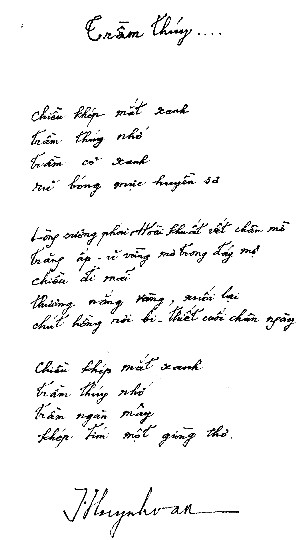 Trầm thúy....
chiều khép mắt xanh
trầm thúy nhớ
trầm cỏ xanh
rũ bóng mực huyền sa
sương phai khuất vết chân
trăng ấp - ủ vàng mơ trong đáy mộ
chiều đi mãi
thương nắng vàng, xuôi lại
chút hồng rơi bi - thiết cuối chân ngày
chiều khép mắt xanh
trầm thúy nhớ
trầm ngàn mây
khép tim một giòng thơ.